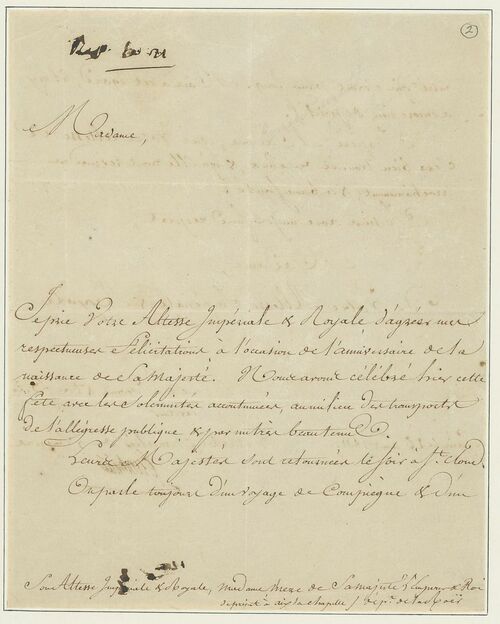 2
Rep. le 21
Madame,
Je prie Votre Altesse Impériale & Royale d'agréer mes
respectueuses félicitations à l'occasion de l'anniversaire de la
naissance de Sa Majesté. Nous avons célébré hier cette
fête avec les solemnités accoutumées, au milieu des transports
de l'allégresse publique & par un très beau tems.
Leurs Majestés sont retournées le soir à St. Cloud.
On parle toujours d'un voyage de Compiègne & d'un
Son Altesse Impériale & Royale, Madame Mere de Sa Majesté l'Empereur & Roi
à aix la chapelle / dépt. de la Roër